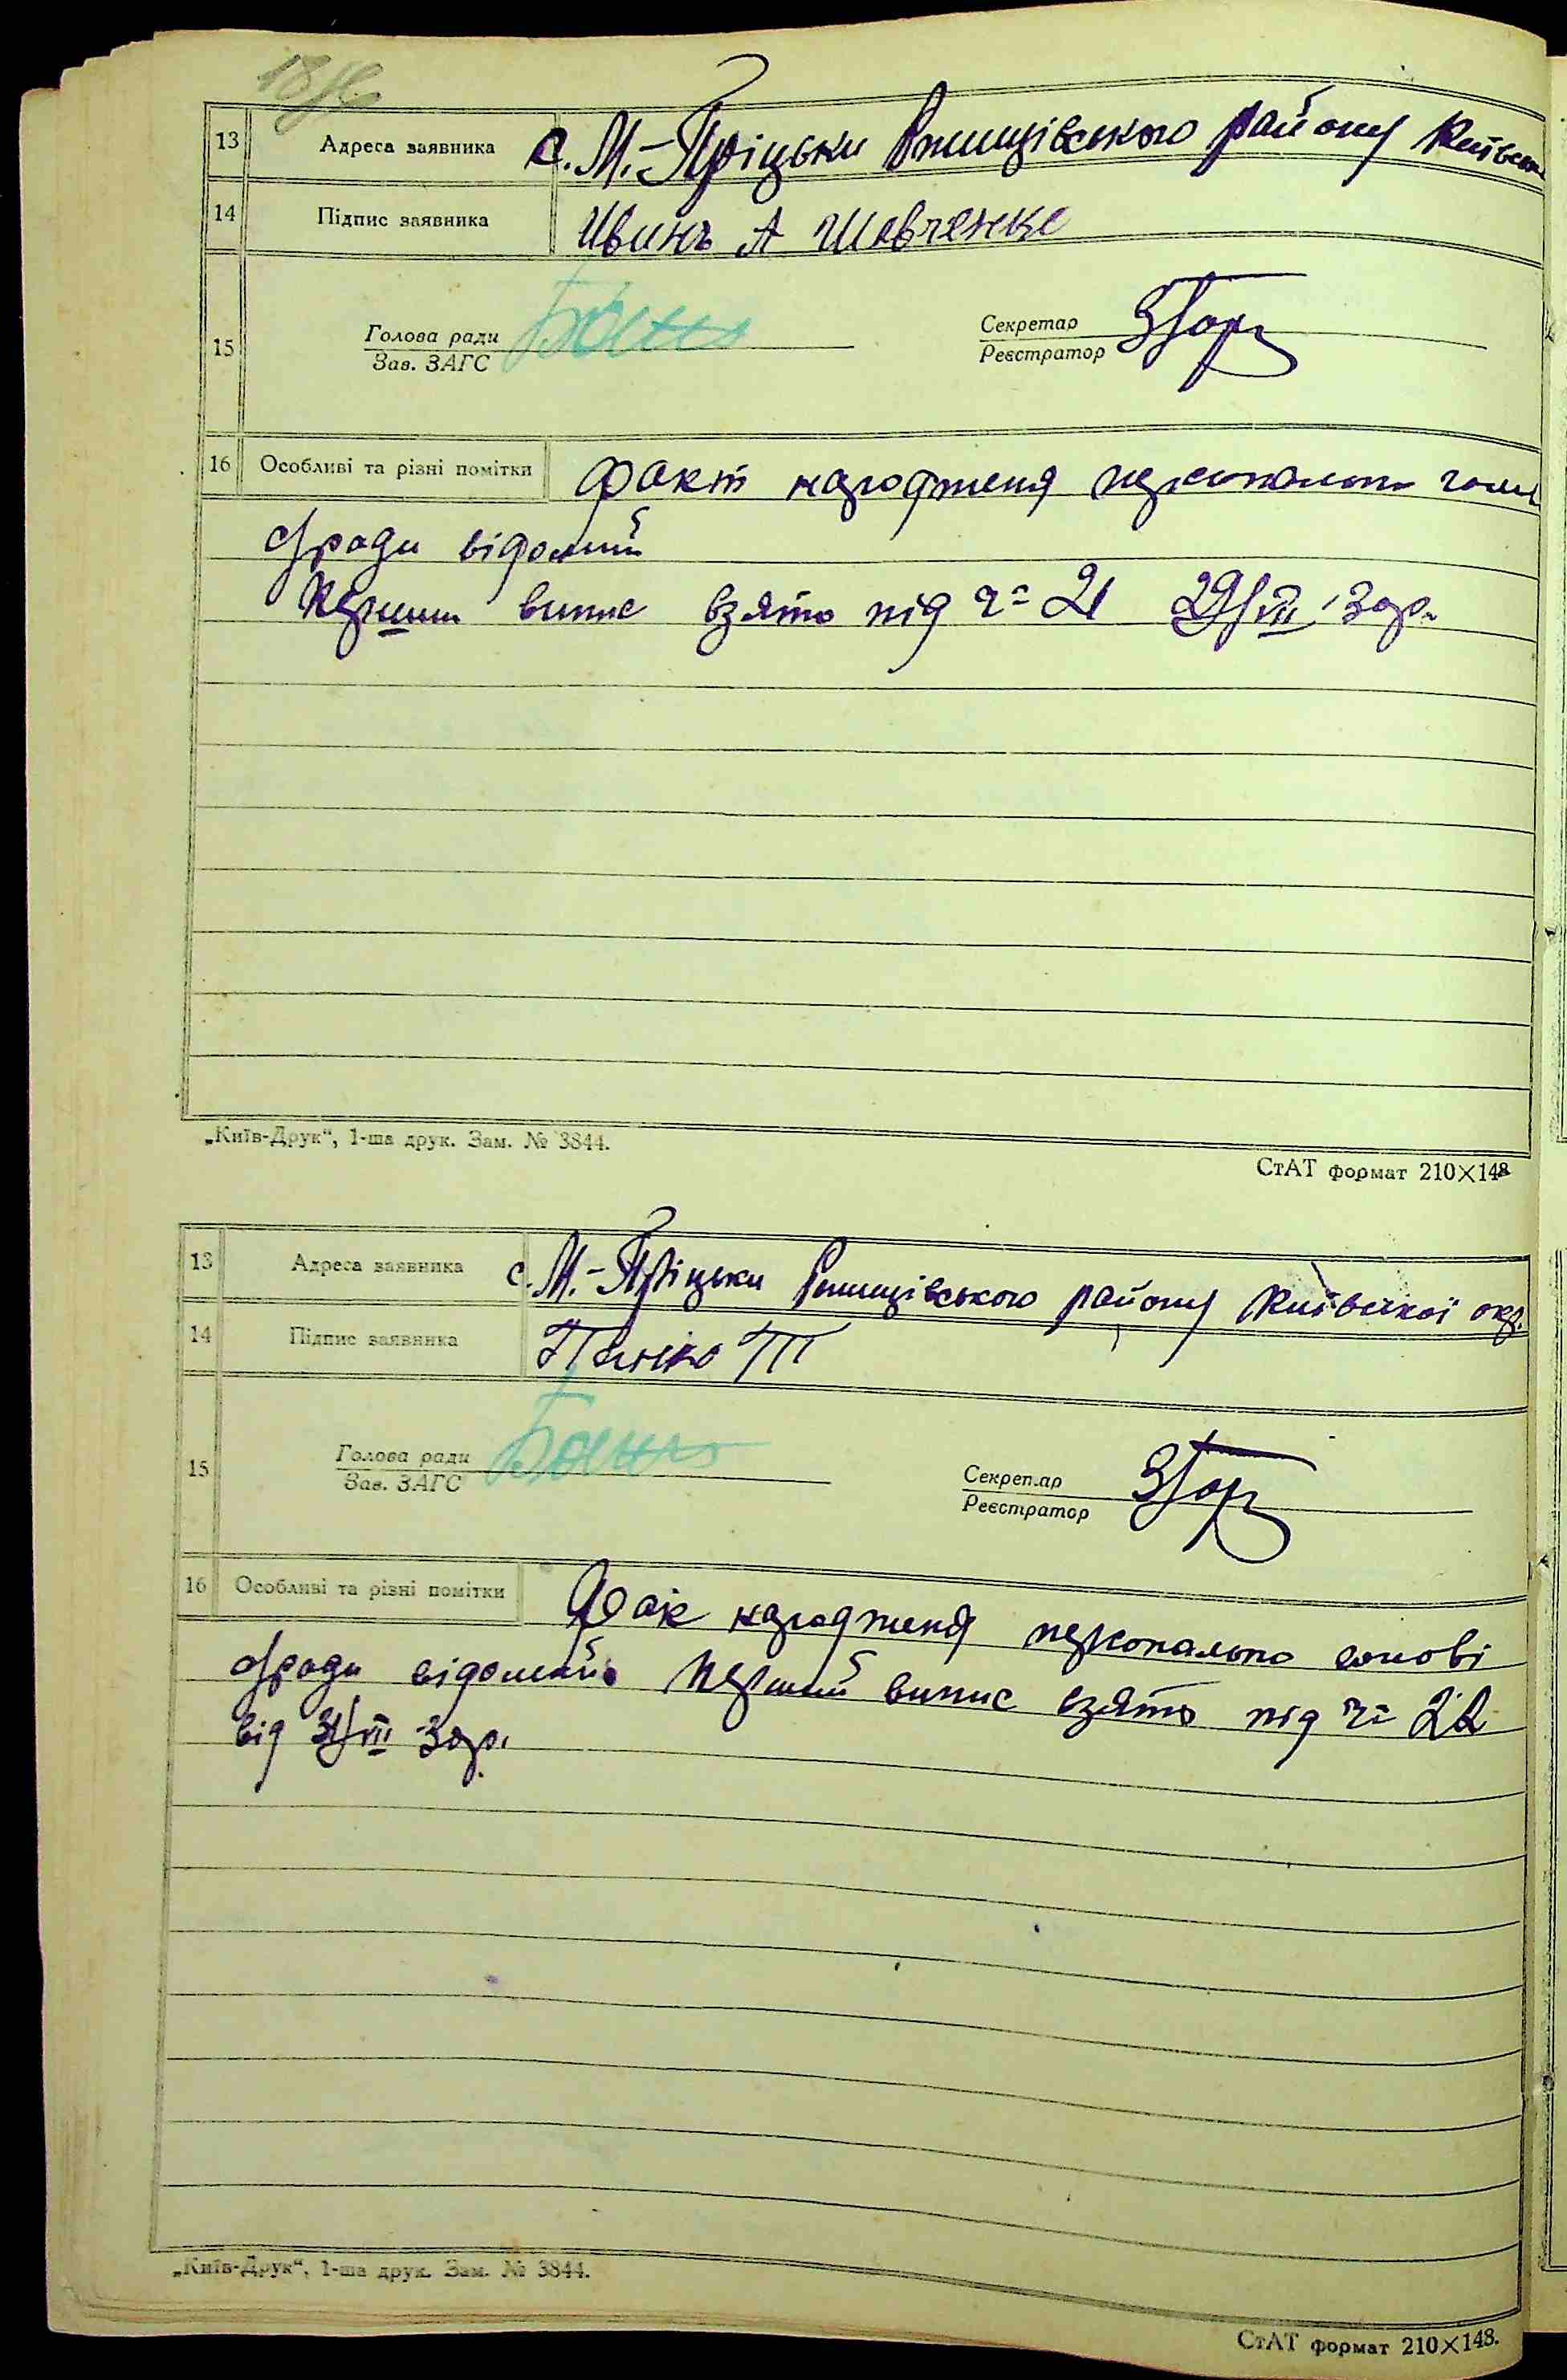 13 Адреса заявника с. М.-Пріцьки Ржищівського району Київськ
14 Підпис заявника Иванъ А Шевченко
15 Голова ради Секретар
Зав. ЗАГС Реєстратор
16 Особливі та різні помітки Факт народженя персонально голи
с/ради відомий
Перший випис взято під ч= 21 29/VII 30р.
„Київ-Друк“, 1-ша друк. Зам. № 3844.
СтАТ формат 210×148
13 Адреса заявника с. М.-Пріцьки Ржищівського району Київської окр.
14 Підпис заявника
15 Голова ради Секретар
Зав. ЗАГС Реєстратор
16 Особливі та різні помітки Фак народженя персонально голові
с/ради відомий Перший випис взято під ч= 22
від 31/VII 30р.
„Київ-Друк“, 1-ша друк. Зам. № 3844.
СтАТ формат 210×148.